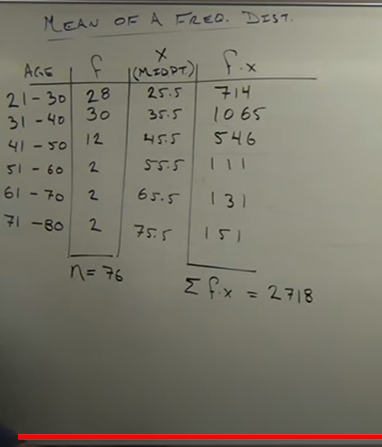 MEAN OF A FREQ. DIST.
AGE f X (MIDPT) f.x
21-30 28 25.5 714
31-40 30 35.5 1065
41-50 12 45.5 546
51-60 2 55.5 111
61-70 2 65.5 131
71-80 2 75.5 151
n=76
Σ f.x = 2718